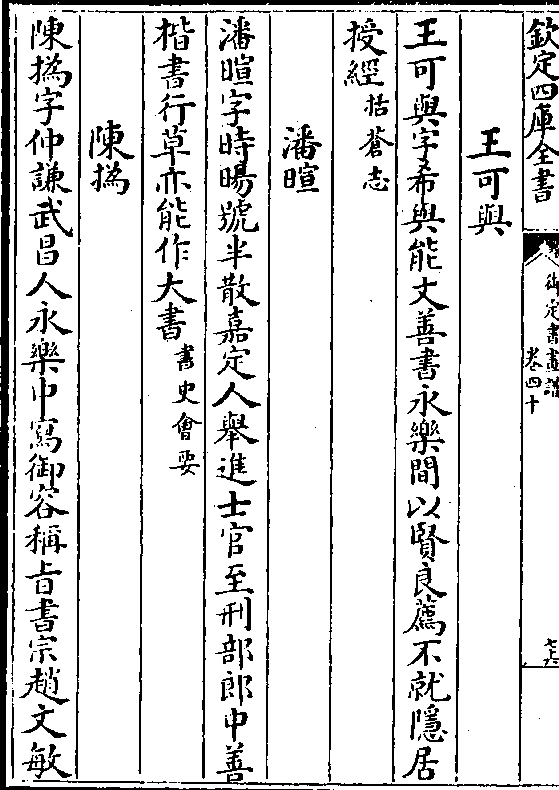 欽定四庫全書
御定書畫譜
卷四十
王可與
王可與字希與能文善書永樂間以賢良薦不就隱居
授經括蒼志
潘暄
潘暄字時暘號半散嘉定人舉進士官至刑部郎中善
楷書行草亦能作大書書史會要
陳撝
陳撝字仲謙武昌人永樂中寫御容稱旨書宗趙文敏